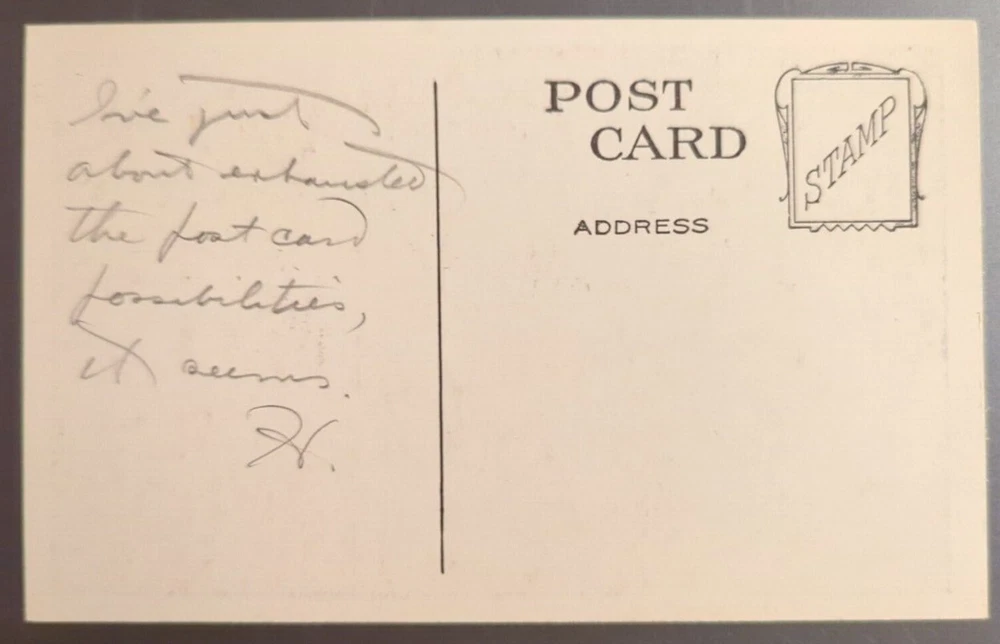 I've just
about exhausted
the post card
possibilities,
it seems.
H.
POST
CARD
STAMP
ADDRESS